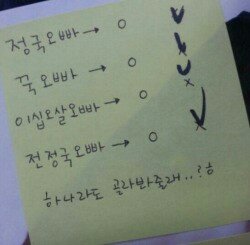 정국오빠→ ○
꾹오빠→ ○ ×
이십오살오빠→ ○ ×
전정국오빠→ ○ ×
하나라도 골라봐줄래..?ㅎ